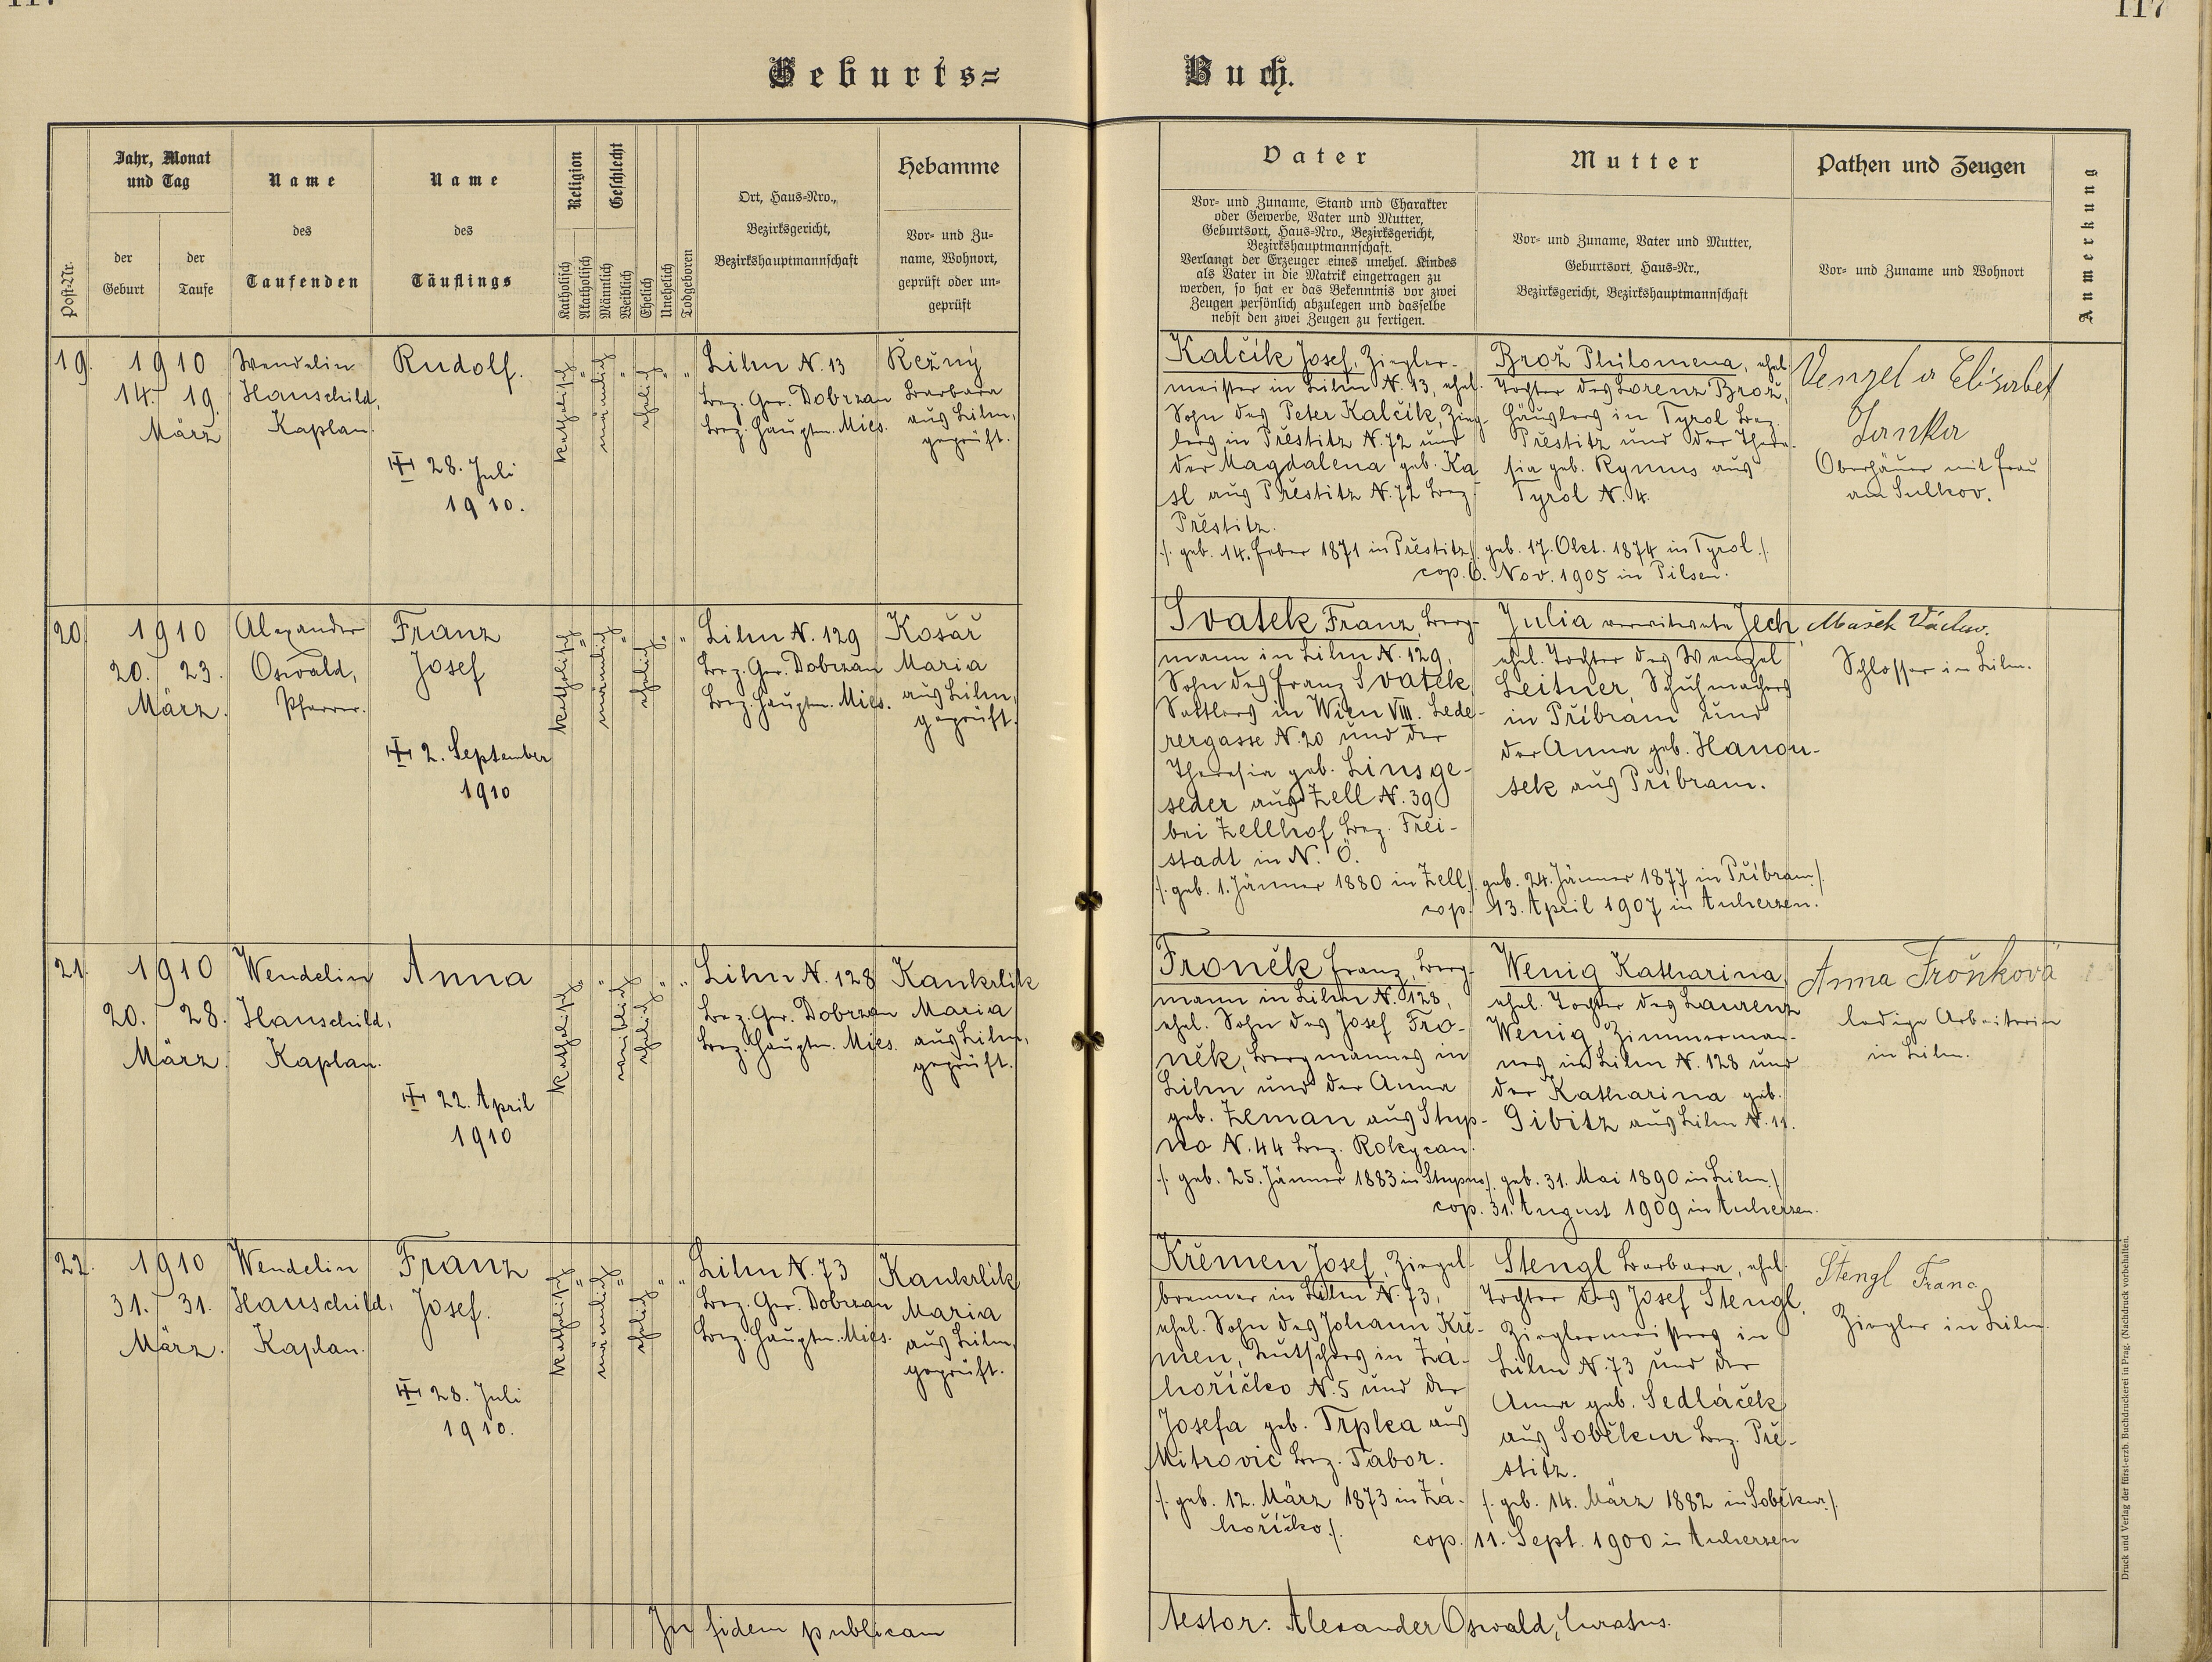 117
Geburts=
Buch.
Post-Nr.
Jahr, Monat
und Tag
der
Geburt
der
Taufe
Name
des
Taufenden
Name
des
Täuflings
Religion
Katholisch
Akatholisch
Geschlecht
Männlich
Weiblich
Ehelich
Unehelich
Todgeboren
Ort, Haus=Nro.,
Bezirksgericht,
Bezirkshauptmannschaft
Hebamme
Vor= und Zu=
name, Wohnort,
geprüft oder un=
geprüft
Vater
Vor= und Zuname, Stand und Charakter
oder Gewerbe, Vater und Mutter,
Geburtsort, Haus=Nro., Bezirksgericht,
Bezirkshauptmannschaft.
Verlangt der Erzeuger eines unehel. Kindes
als Vater in die Matrik eingetragen zu
werden, so hat er das Bekenntnis vor zwei
Zeugen persönlich abzulegen und dasselbe
nebst den zwei Zeugen zu fertigen.
Mutter
Vor= und Zuname, Vater und Mutter,
Geburtsort, Haus=Nr.,
Bezirksgericht, Bezirkshauptmannschaft
Pathen und Zeugen
Vor= und Zuname und Wohnort
Anmerkung
19.
1910
14. 19.
März
Wendelin
Hauschild,
Kaplan.
Rudolf.
28. Juli
1910.
katholisch
"
männlich
"
ehelich
"
"
Lihn N. 13
Bez. Ger. Dobrzan
Bez. Hauptm. Mies.
Řežný
Barbara
aus Lihn,
geprüft.
Kalčík Josef, Ziegler-
meister in Lihn N. 13, ehel.
Sohn des Peter Kalčík, Zieg-
lers in Přestitz N. 72 und
der Magdalena geb. Ka
sl aus Přestitz N. 72 Bez.
Přestitz.
/. geb. 14. Feber 1871 in Přestitz./
Brož Philomena, ehel.
Tochter des Lorenz Brož,
Häuslers in Tyrol Bez.
Přestitz und der There-
sia geb. Rymus aus
Tyrol N. 4.
geb. 17. Okt. 1874 in Tyrol./
cop. 6. Nov. 1905 in Pilsen.
Venzel a Elisabet
Janka
Oberhäuer mit Frau
am Sulkov.
20.
1910
20. 23.
März.
Alexander
Oswald,
Pfarrer.
Franz
Josef
2. September
1910
katholisch
"
männlich
"
ehelich
"
"
Lihn N. 129
Bez. Ger. Dobrzan
Bez. Hauptm. Mies.
Košař
Maria
aus Lihn,
geprüft.
Svatek Franz, Berg-
mann in Lihn N. 129,
Sohn des Franz Svatek,
Sattlers in Wien VIII. Lede-
rergasse N. 20 und der
Theresia geb. Linsge-
seder aus Zell N. 39
bei Zellhof Bez. Frei-
stadt in N. Ö.
/. geb. 1. Jänner 1880 in Zell./
Julia verwitwete Jech,
ehel. Tochter des Wenzel
Leitner, Schuhmachers
in Příbram und
der Anna geb. Hanou-
sek aus Příbram.
geb. 24. Jänner 1877 in Příbram./
cop. 13. April 1907 in Auherzen.
Mašek Václav.
Schlosser in Lihn.
21.
1910
20. 28.
März.
Wendelin
Hauschild,
Kaplan.
Anna
22. April
1910
katholisch
"
"
weiblich
ehelich
"
"
Lihn N. 128
Bez. Ger. Dobrzan
Bez. Hauptm. Mies.
Kankrlík
Maria
aus Lihn,
geprüft.
Froněk Franz, Berg-
mann in Lihn N. 128,
ehel. Sohn des Josef Fro-
něk, Bergmannes in
Lihn und der Anna
geb. Zeman aus Stup-
no N. 44 Bez. Rokycan.
/. geb. 25. Jänner 1883 in Stupno./
Wenig Katharina,
ehel. Tochter des Laurenz
Wenig, Zimmerman-
nes in Lihn N. 128 und
der Katharina geb.
Gibitz aus Lihn N. 11.
geb. 31. Mai 1890 in Lihn./
cop. 31. August 1909 in Auherzen.
Anna Froňková
ledige Arbeiterin
in Lihn.
22.
1910
31. 31.
März.
Wendelin
Hauschild,
Kaplan.
Franz
Josef.
28. Juli
1910.
katholisch
"
männlich
"
ehelich
"
"
Lihn N. 73
Bez. Ger. Dobrzan
Bez. Hauptm. Mies.
Kankrlík
Maria
aus Lihn,
geprüft.
Křemen Josef, Ziegel-
brenner in Lihn N. 73,
ehel. Sohn des Johann Kře-
men, Kutschers in Zá-
hoříčko N. 5 und der
Josefa geb. Trpka aus
Mitrovic Bez. Tabor.
/. geb. 12. März 1873 in Zá-
hoříčko./
Stengl Barbara, ehel.
Tochter des Josef Stengl,
Zieglermeisters in
Lihn N. 73 und der
Anna geb. Sedláček
aus Soběkur Bez. Pře-
stitz.
/. geb. 14. März 1882 in Soběkur./
cop. 11. Sept. 1900 in Auherzen
Štengl Franc
Ziegler in Lihn.
In fidem publicam
testor: Alexander Oswald, Curatus.
Druck und Verlag der fürst-erzb. Buchdruckerei in Prag. (Nachdruck vorbehalten.